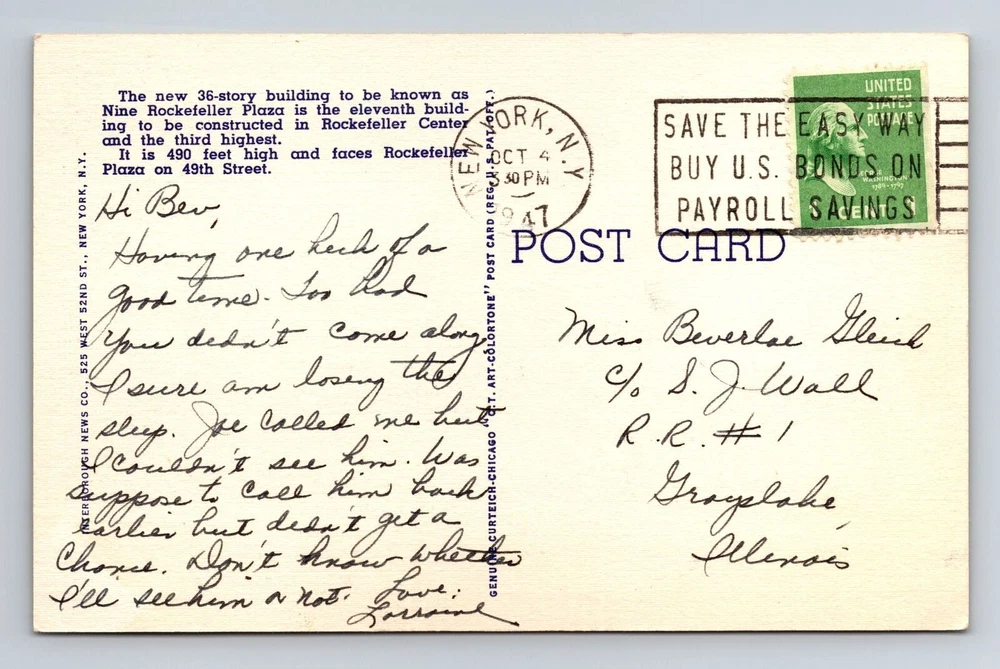 The new 36-story building to be known as
Nine Rockefeller Plaza is the eleventh build-
ing to be constructed in Rockefeller Center
and the third highest.
It is 490 feet high and faces Rockefeller
Plaza on 49th Street.
Hi Bev,
Having one heck of a
good time. Too bad
You didn't come along
I sure am losing the
sleep. Joe called me but
I couldn't see him. Was
suppose to call him back
earlier but didn't get a
chance. Don't know whether
I'll see him or not. Love:
Lorraine
INTERBOROUGH NEWS CO., 525 WEST 52ND ST., NEW YORK, N.Y.
GENUINE CURTEICH-CHICAGO "C.T. ART-COLORTONE" POST CARD (REG. U.S. PAT. OFF.)
NEW YORK, N.Y.
OCT 4
30 PM
1947
SAVE THE EASY WAY
BUY U.S. BONDS ON
PAYROLL SAVINGS
UNITED
STATES
POSTAGE
WASHINGTON
1789-1797
POST CARD
Miss Beverlae Gleich
c/o S. J. Wall
R.R. #1
Grayslake,
Illinois